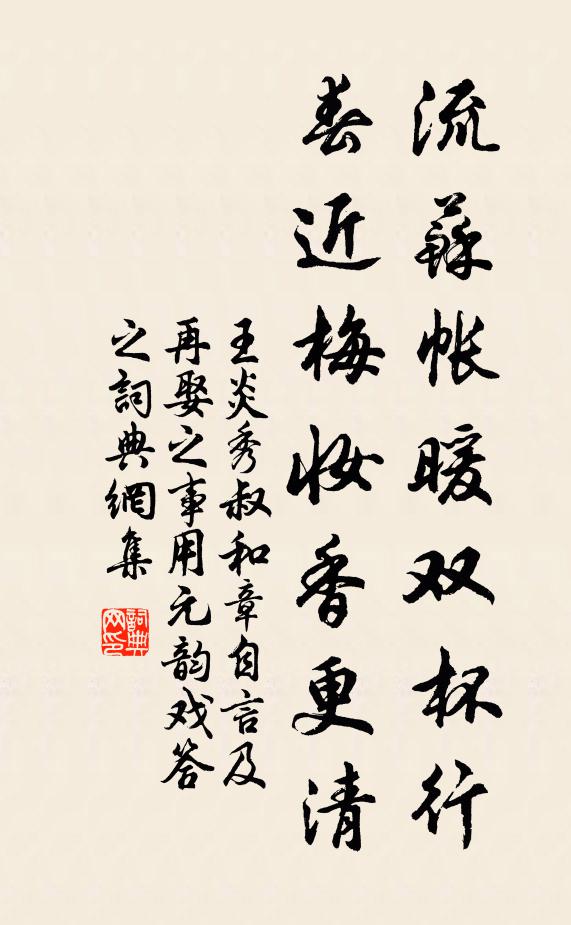 流蘇帐暖双杯行
春近梅妆香更清
王炎秀叔和章自言及
再娶之事用元韵戏答
之詞典網集
詞典網印